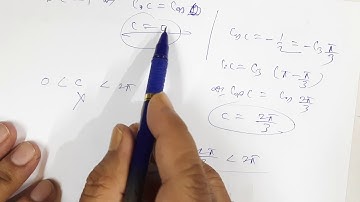 cos c = cos 0
c = 0
0 < c < 2π
cos c = -1/2 = -cos π/3
cos c = cos (π - π/3)
or cos c = cos 2π/3
c = 2π/3
2π/3 < 2π